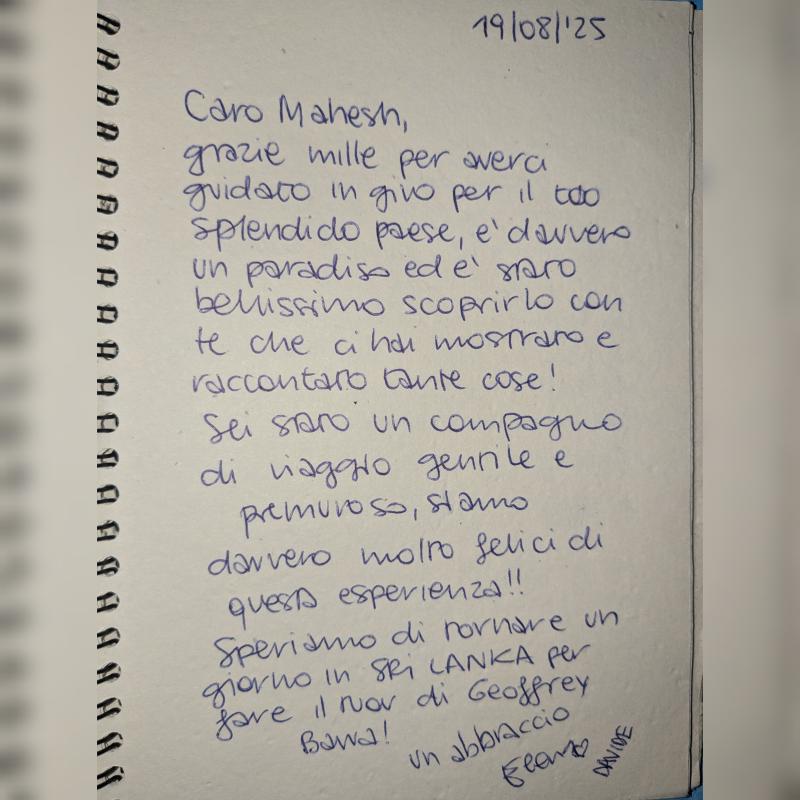 19/08/'25
Caro Mahesh,
grazie mille per averci
guidato in giro per il tuo
splendido paese, e' davvero
un paradiso ed e' stato
bellissimo scoprirlo con
te che ci hai mostrato e
raccontato tante cose!
Sei stato un compagno
di viaggio gentile e
premuroso, siamo
davvero molto felici di
questa esperienza!!
Speriamo di tornare un
giorno in SRI LANKA per
fare il tour di Geoffrey
Bawa!
un abbraccio
DAVIDE